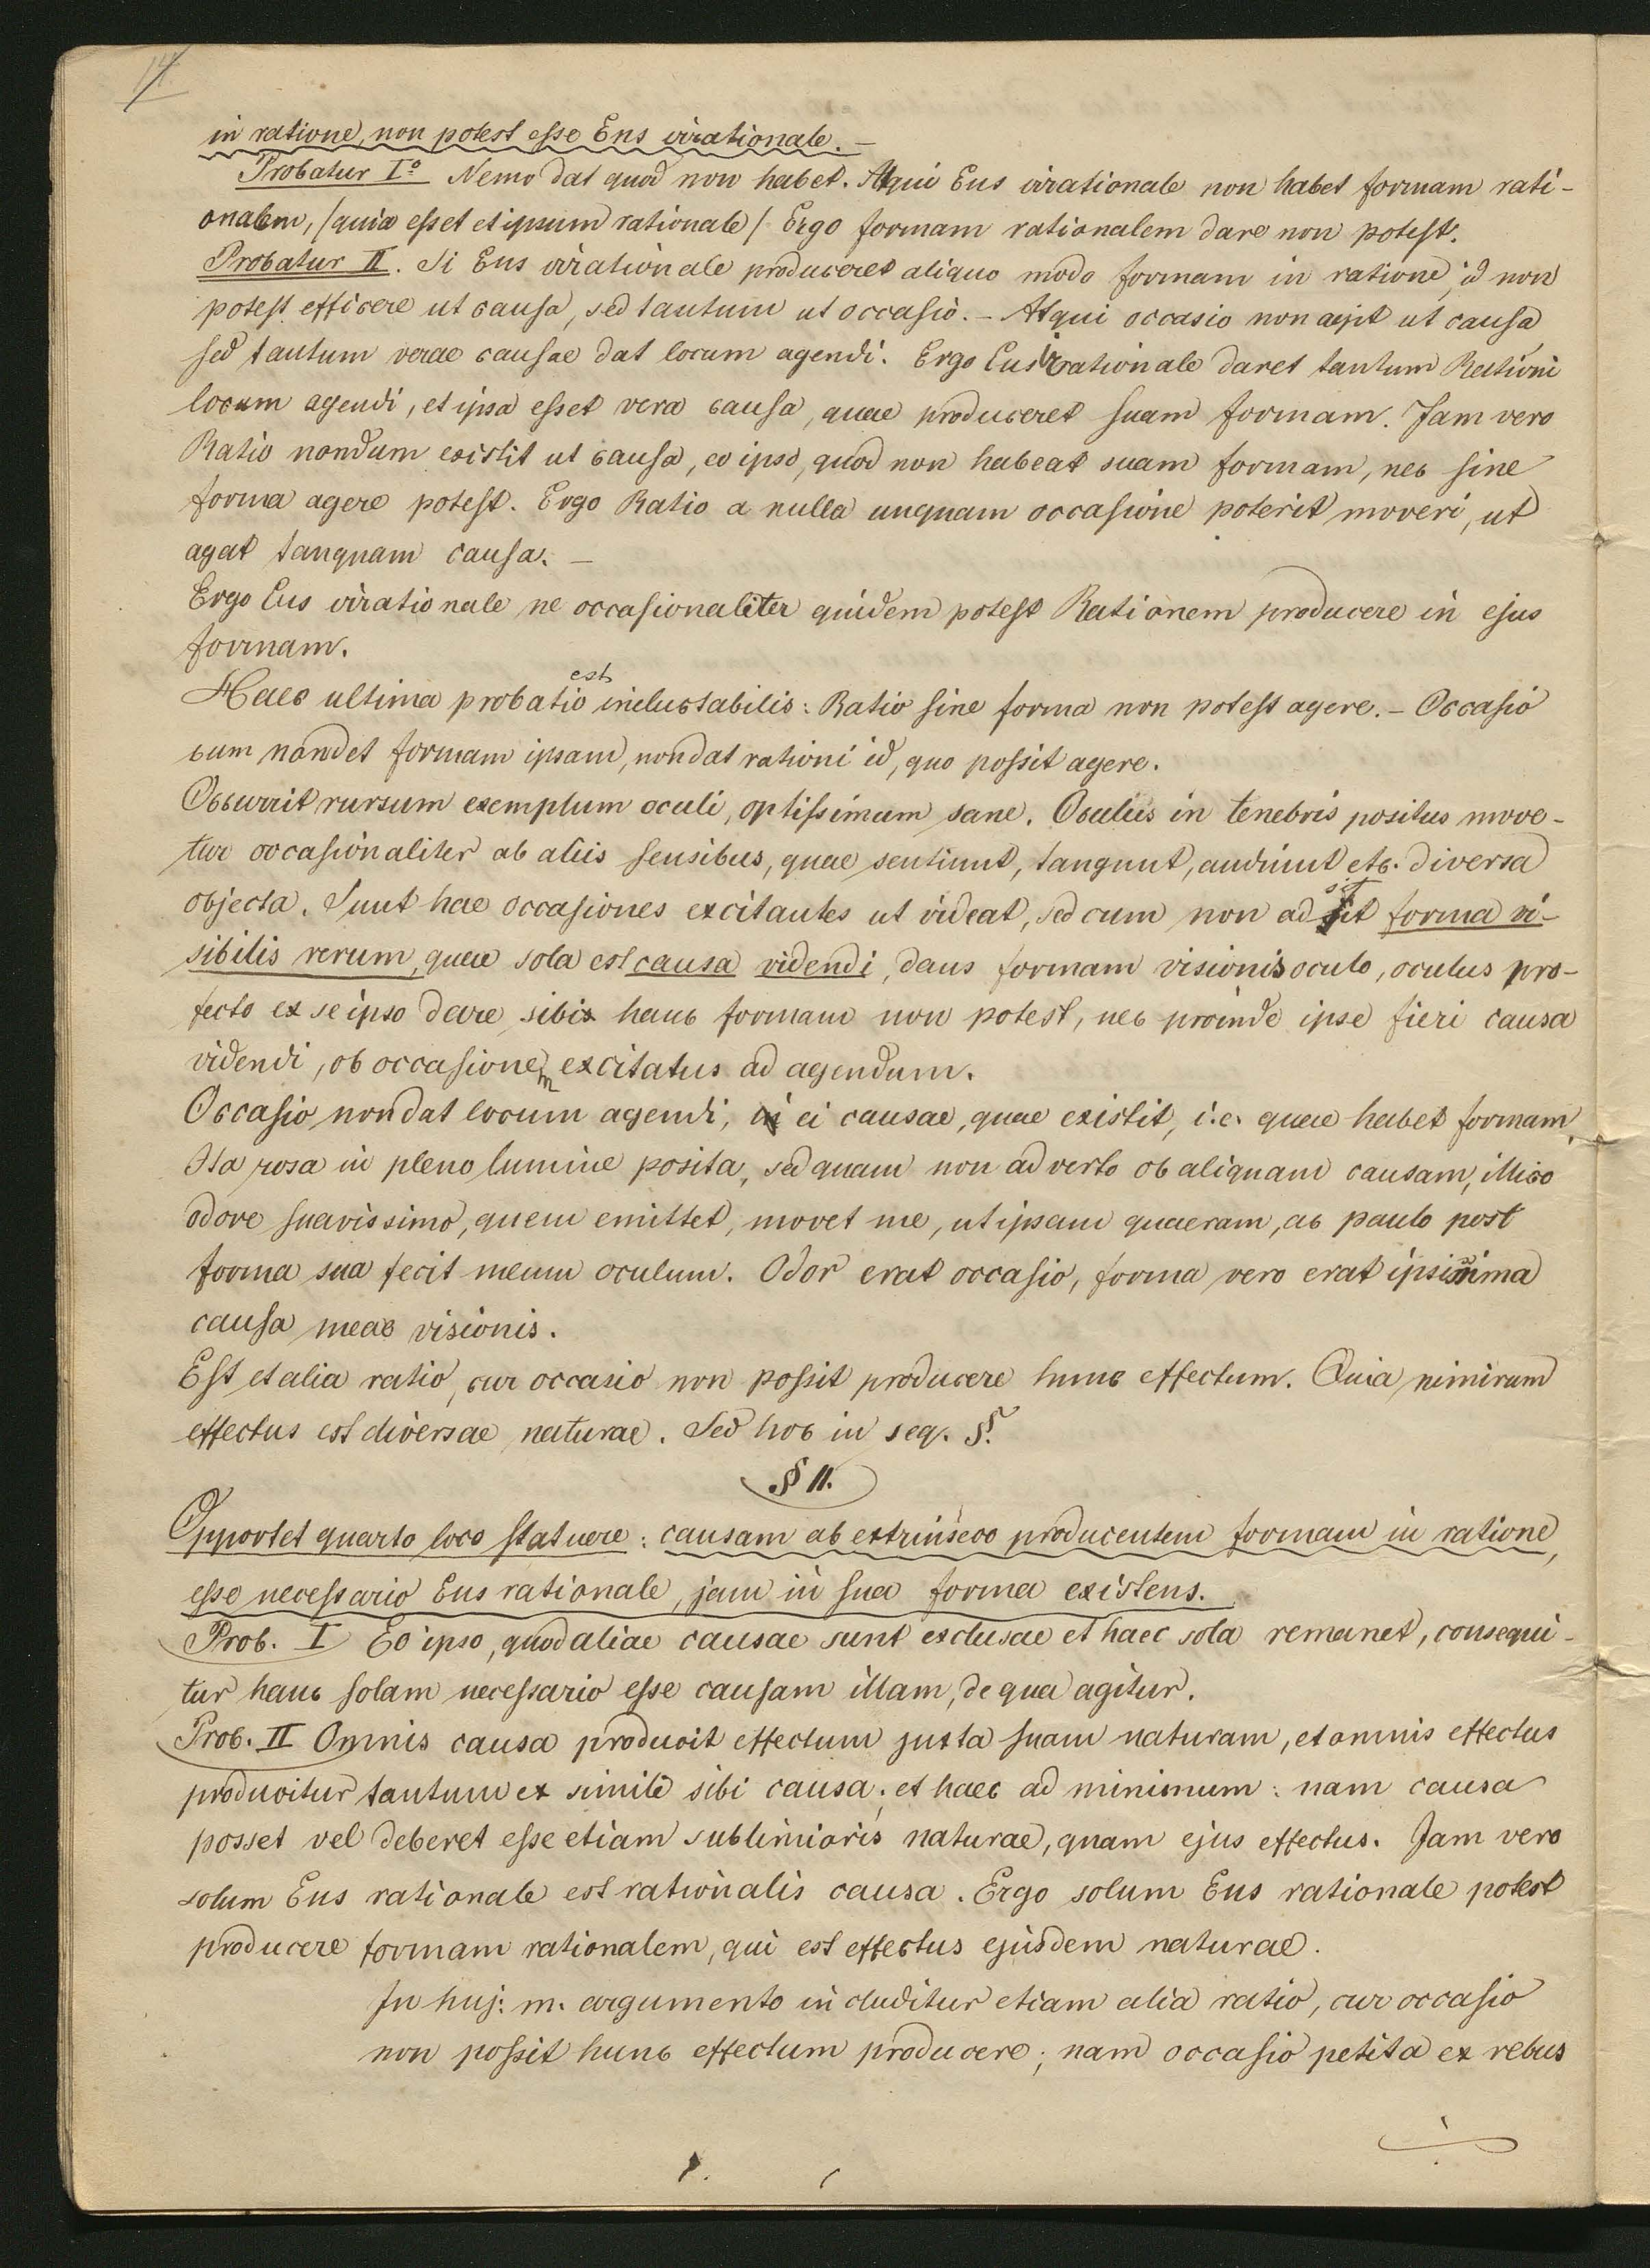 14
in ratione, non potest esse Ens irrationale. —
Probatur I° Nemo dat quod non habet. Atqui Ens irrationale non habet formam rati-
onalem, /quia esset et ipsum rationale/ Ergo formam rationalem dare non potest.
Probatur II. Si Ens irrationale produceret aliquo modo formam in ratione, id non
potest efficere ut causa, sed tantum ut occasio. – Atqui occasio non agit ut causa
sed tantum verae causae dat locum agendi. Ergo Ens irrationale daret tantum Rationi
locum agendi, et ipsa esset vera causa, quae produceret suam formam. Jam vero
Ratio nondum existit ut causa, eo ipso, quod non habeat suam formam, nec sine
forma agere potest. Ergo Ratio a nulla unquam occasione poterit moveri, ut
agat tanquam causa. —
Ergo Ens irrationale ne occasionaliter quidem potest Rationem producere in ejus
formam.
Haec ultima probatio est ineluctabilis: Ratio sine forma non potest agere. – Occasio
cum non det formam ipsam, non dat rationi id, quo possit agere.
Occurrit rursum exemplum oculi, optissimum sane. Oculus in tenebris positus move-
tur occasionaliter ab aliis sensibus, quae sentiunt, tangunt, audiunt etc. diversa
objecta. Sunt hae occasiones excitantes ut videat, sed cum non adsit forma vi-
sibilis rerum, quae sola est causa videndi, dans formam visionis oculo, oculus pro-
fecto ex se ipso dare sibi hanc formam non potest, nec proinde ipse fieri causa
videndi, ob occasionem excitatus ad agendum.
Occasio non dat locum agendi, ni ei causae, quae existit, i.e. quae habet formam.
Ita rosa in pleno lumine posita, sed quam non adverto ob aliquam causam, illico
odore suavissimo, quem emittet, movet me, ut ipsam quaeram, ac paulo post
forma sua fecit meum oculum. Odor erat occasio, forma vero erat ipsissima
causa meae visionis.
Est et alia ratio, cur occasio non possit producere hunc effectum. Quia nimirum
effectus est diversae naturae. Sed hoc in seq. §.
§ 11.
Opportet quarto loco statuere: causam ab extrinseco producentem formam in ratione,
esse necessario Ens rationale, jam in sua forma existens.
Prob. I Eo ipso, quod aliae causae sunt exclusae et haec sola remanet, consequi-
tur hanc solam necessario esse causam illam, de qua agitur.
Prob. II Omnis causa producit effectum juxta suam naturam, et omnis effectus
producitur tantum ex simile sibi causa; et haec ad minimum: nam causa
posset vel deberet esse etiam sublimioris naturae, quam ejus effectus. Jam vero
solum Ens rationale est rationalis causa. Ergo solum Ens rationale potest
producere formam rationalem, qui est effectus ejusdem naturae.
In huj: m. argumento includitur etiam alia ratio, cur occasio
non possit hunc effectum producere; nam occasio petita ex rebus